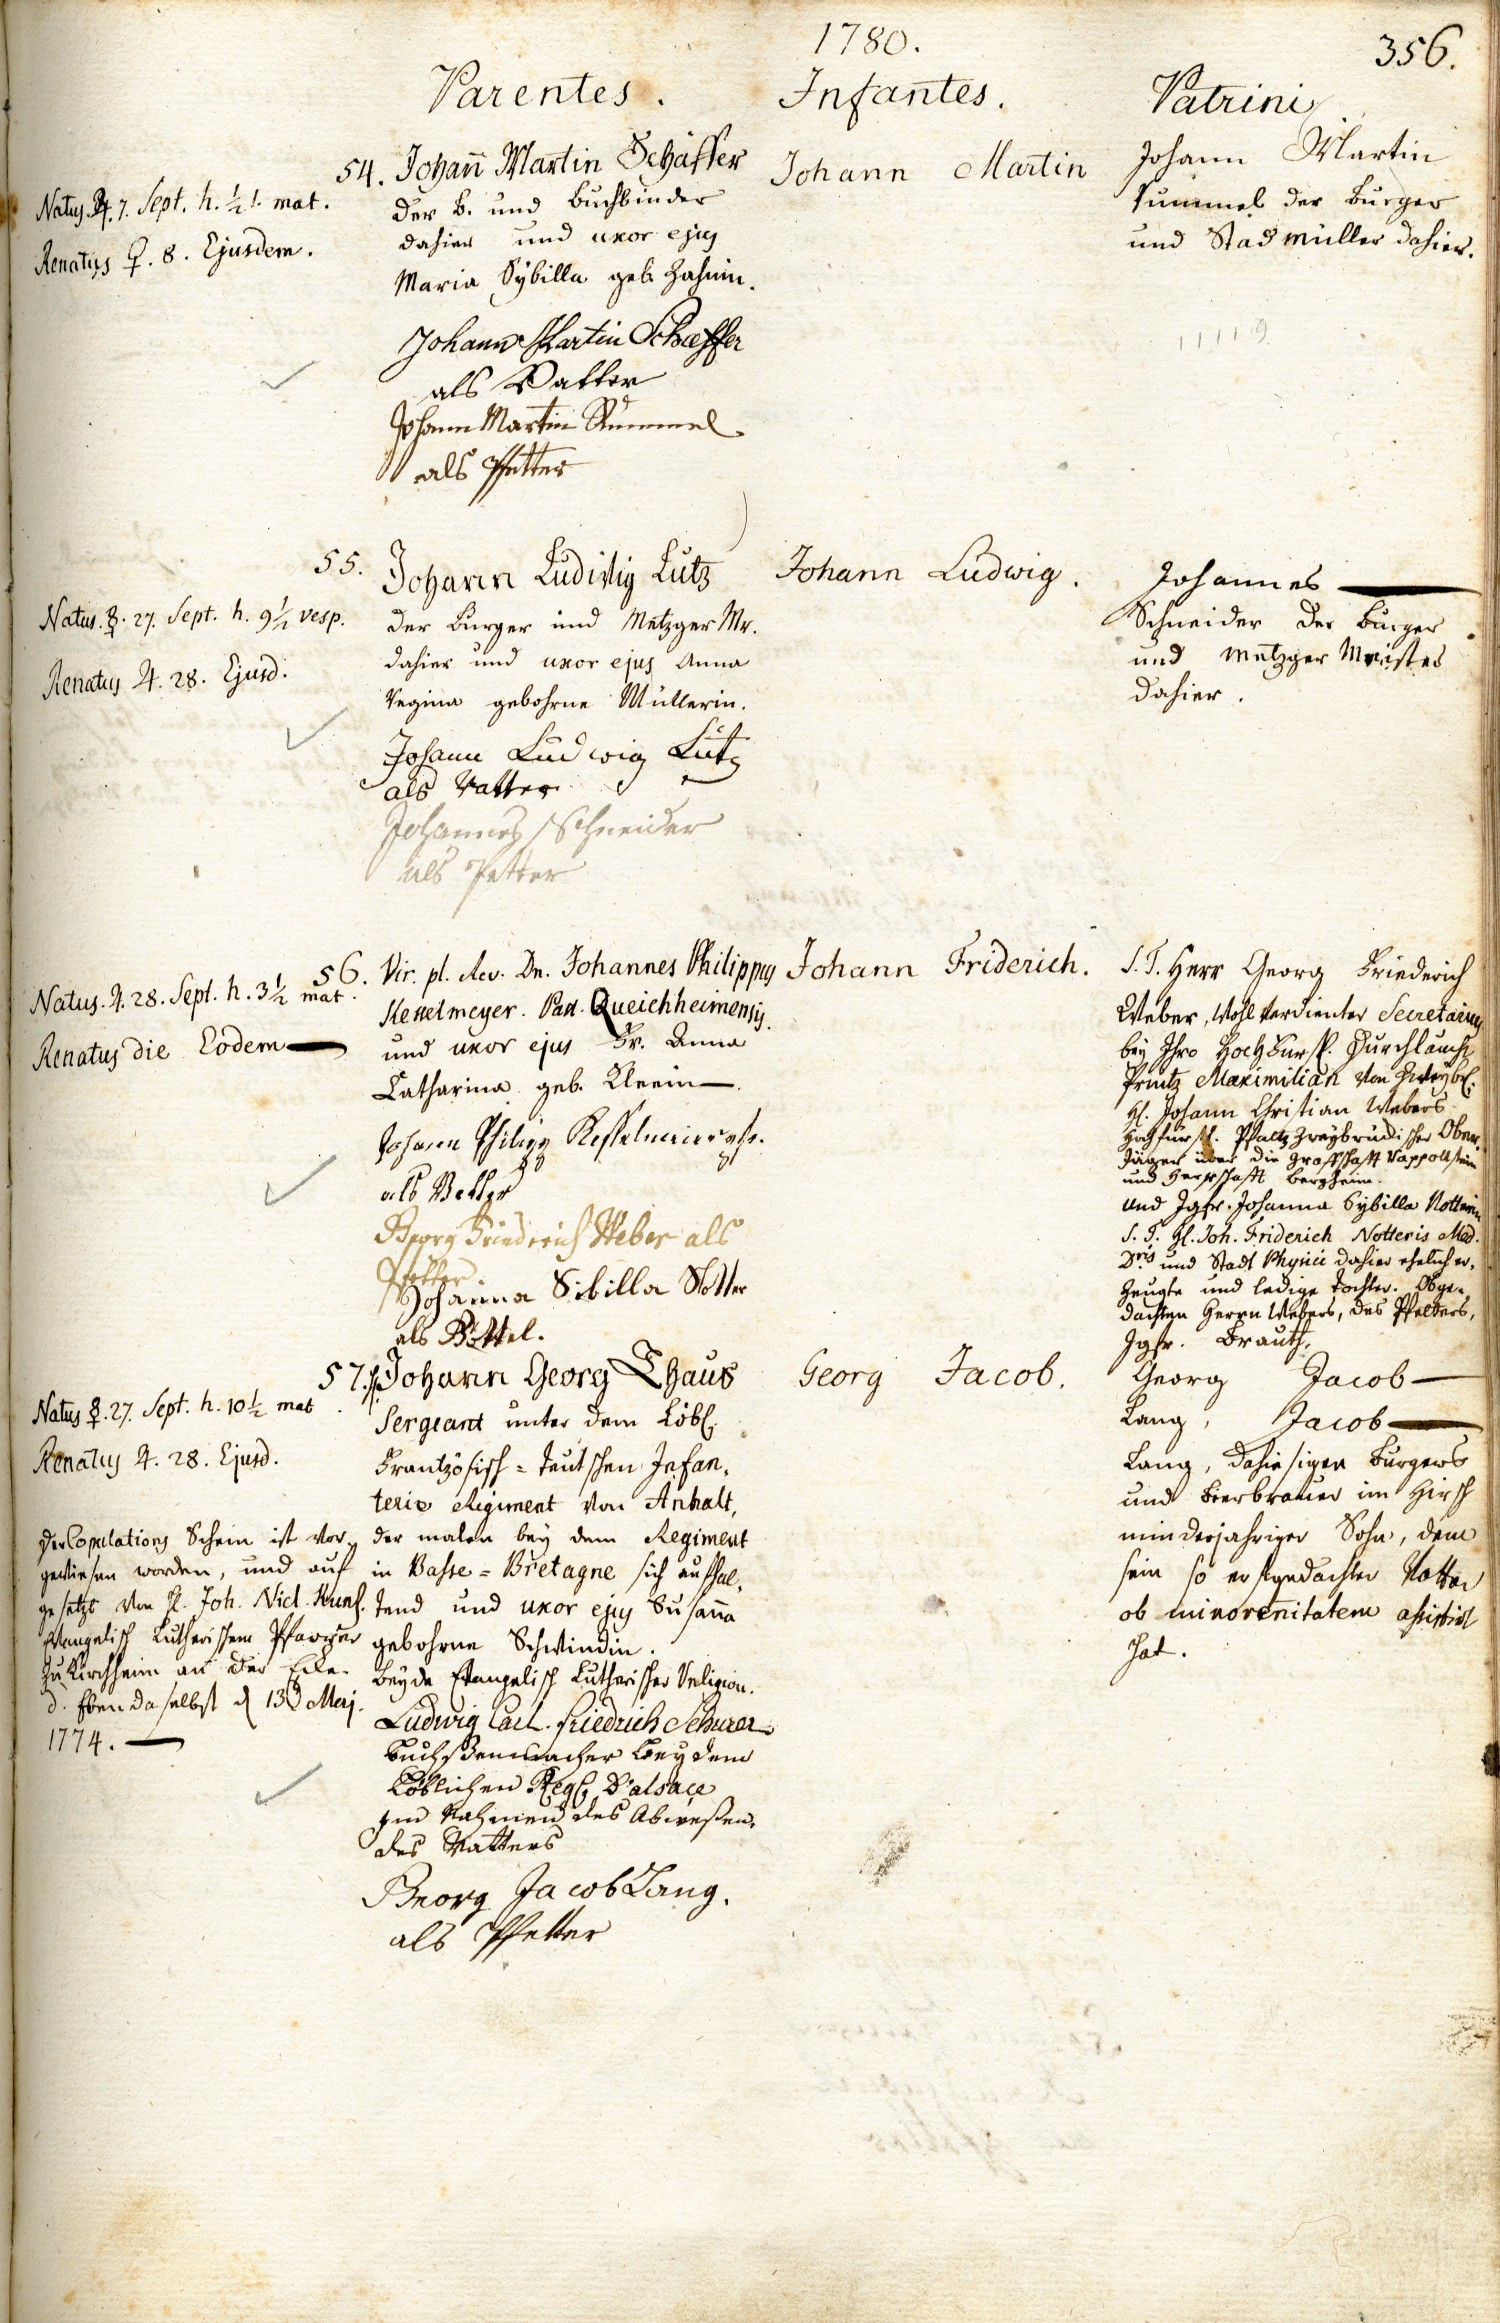 1780.
356.
Parentes.
Infantes.
Patrini
54.
Natus ♃. 7. Sept. h. ½ 1. mat.
Renatus ♀. 8. Ejusdem.
Johañ Martin Schäffer
der B. und Buchbinder
dahier und uxor ejus
Maria Sybilla geb. Hahnin.
Johann Martin Schæffer
als Vatter
Johann Martin Rummel
als Pfetter
Johann Martin
Johann Martin
Rummel der Burger
und Stadmüller dahier.
11119
55.
Natus. ☿. 27. Sept. h. 9½ vesp.
Renatus ♃. 28. Ejusd.
Johann Ludwig Lutz
der Burger und Metzger Mr.
dahier und uxor ejus Anna
Regina gebohrne Müllerin.
Johann Ludwig Lutz
als Vatter
Johannes Schneider
als Petter
Johann Ludwig.
Johannes —
Schneider der Burger
und Metzger Meister
dahier.
56.
Natus. ♃. 28. Sept. h. 3½ mat.
Renatus die Eodem —
Vir. pl. Rev. Dn. Johannes Philippus
Kesselmeyer. Past. Queichheimensis.
und uxor ejus Fr. Anna
Catharina geb. Kleein —.
Johann Philipp Kesselmeier
als Vatter
Georg Friederich Weber als
Petter
Johanna Sibilla Notter
als Göttel.
Johann Friderich.
S. T. Herr Georg Friederich
Weber, Wohlverdienter Secretarius
bey Ihro Hochfürstl. Durchlaucht
Printz Maximilian von Zweybr.
H. Johann Christian Webers
Hochfürstl. Pfaltz Zweybrückischer Ober-
Jäger über die Graffschafft Rappoltstein
und Herrschafft Bergheim.
und Jgfr. Johanna Sybilla Notterin
S. T. H. Joh. Friderich Notteris Med.
Dris und Stadt Physici dahier ehelich er-
zeugte und ledige Tochter. Obge-
dachten Herrn Webers, des Pfetters,
Jgfr. Brauth.
57.
Natus ☿. 27. Sept. h. 10½ mat.
Renatus ♃. 28. Ejusd.
Der Copulations Schein ist vor-
gewiesen worden, und auf
gesetzt von H. Joh. Nicl.
Evangelisch Lutherischem Pfarrer
zu Kirchheim an der Ecke.
d. Ebendaselbst d 13 Maj.
1774. —
Johann Georg Thaus
Sergeant unter dem Löbl.
Frantzösisch = Teutschen Infan-
terie Regiment von Anhalt,
der malen bey dem Regiment
in Basse = Bretagne sich aufhal-
tend und uxor ejus Susaña
gebohrne Schwindin.
Beyde Evangelisch Lutherischer Religion.
Ludwig Carl Friedrich Schurer
Buchsenmacher bey dem
Löblichen Regt. D'alsace
im Nahmen des Abweßen-
des Vatters
Georg Jacob Lang.
als Pfetter
Georg Jacob.
Georg Jacob —
Lang, Jacob —
Lang, dahiesigen Burgers
und Bierbrauer im Hirsch
minderjähriger Sohn, dem
sein so erstgedachter Vatter
ob minorenitatem assistirt
hat.